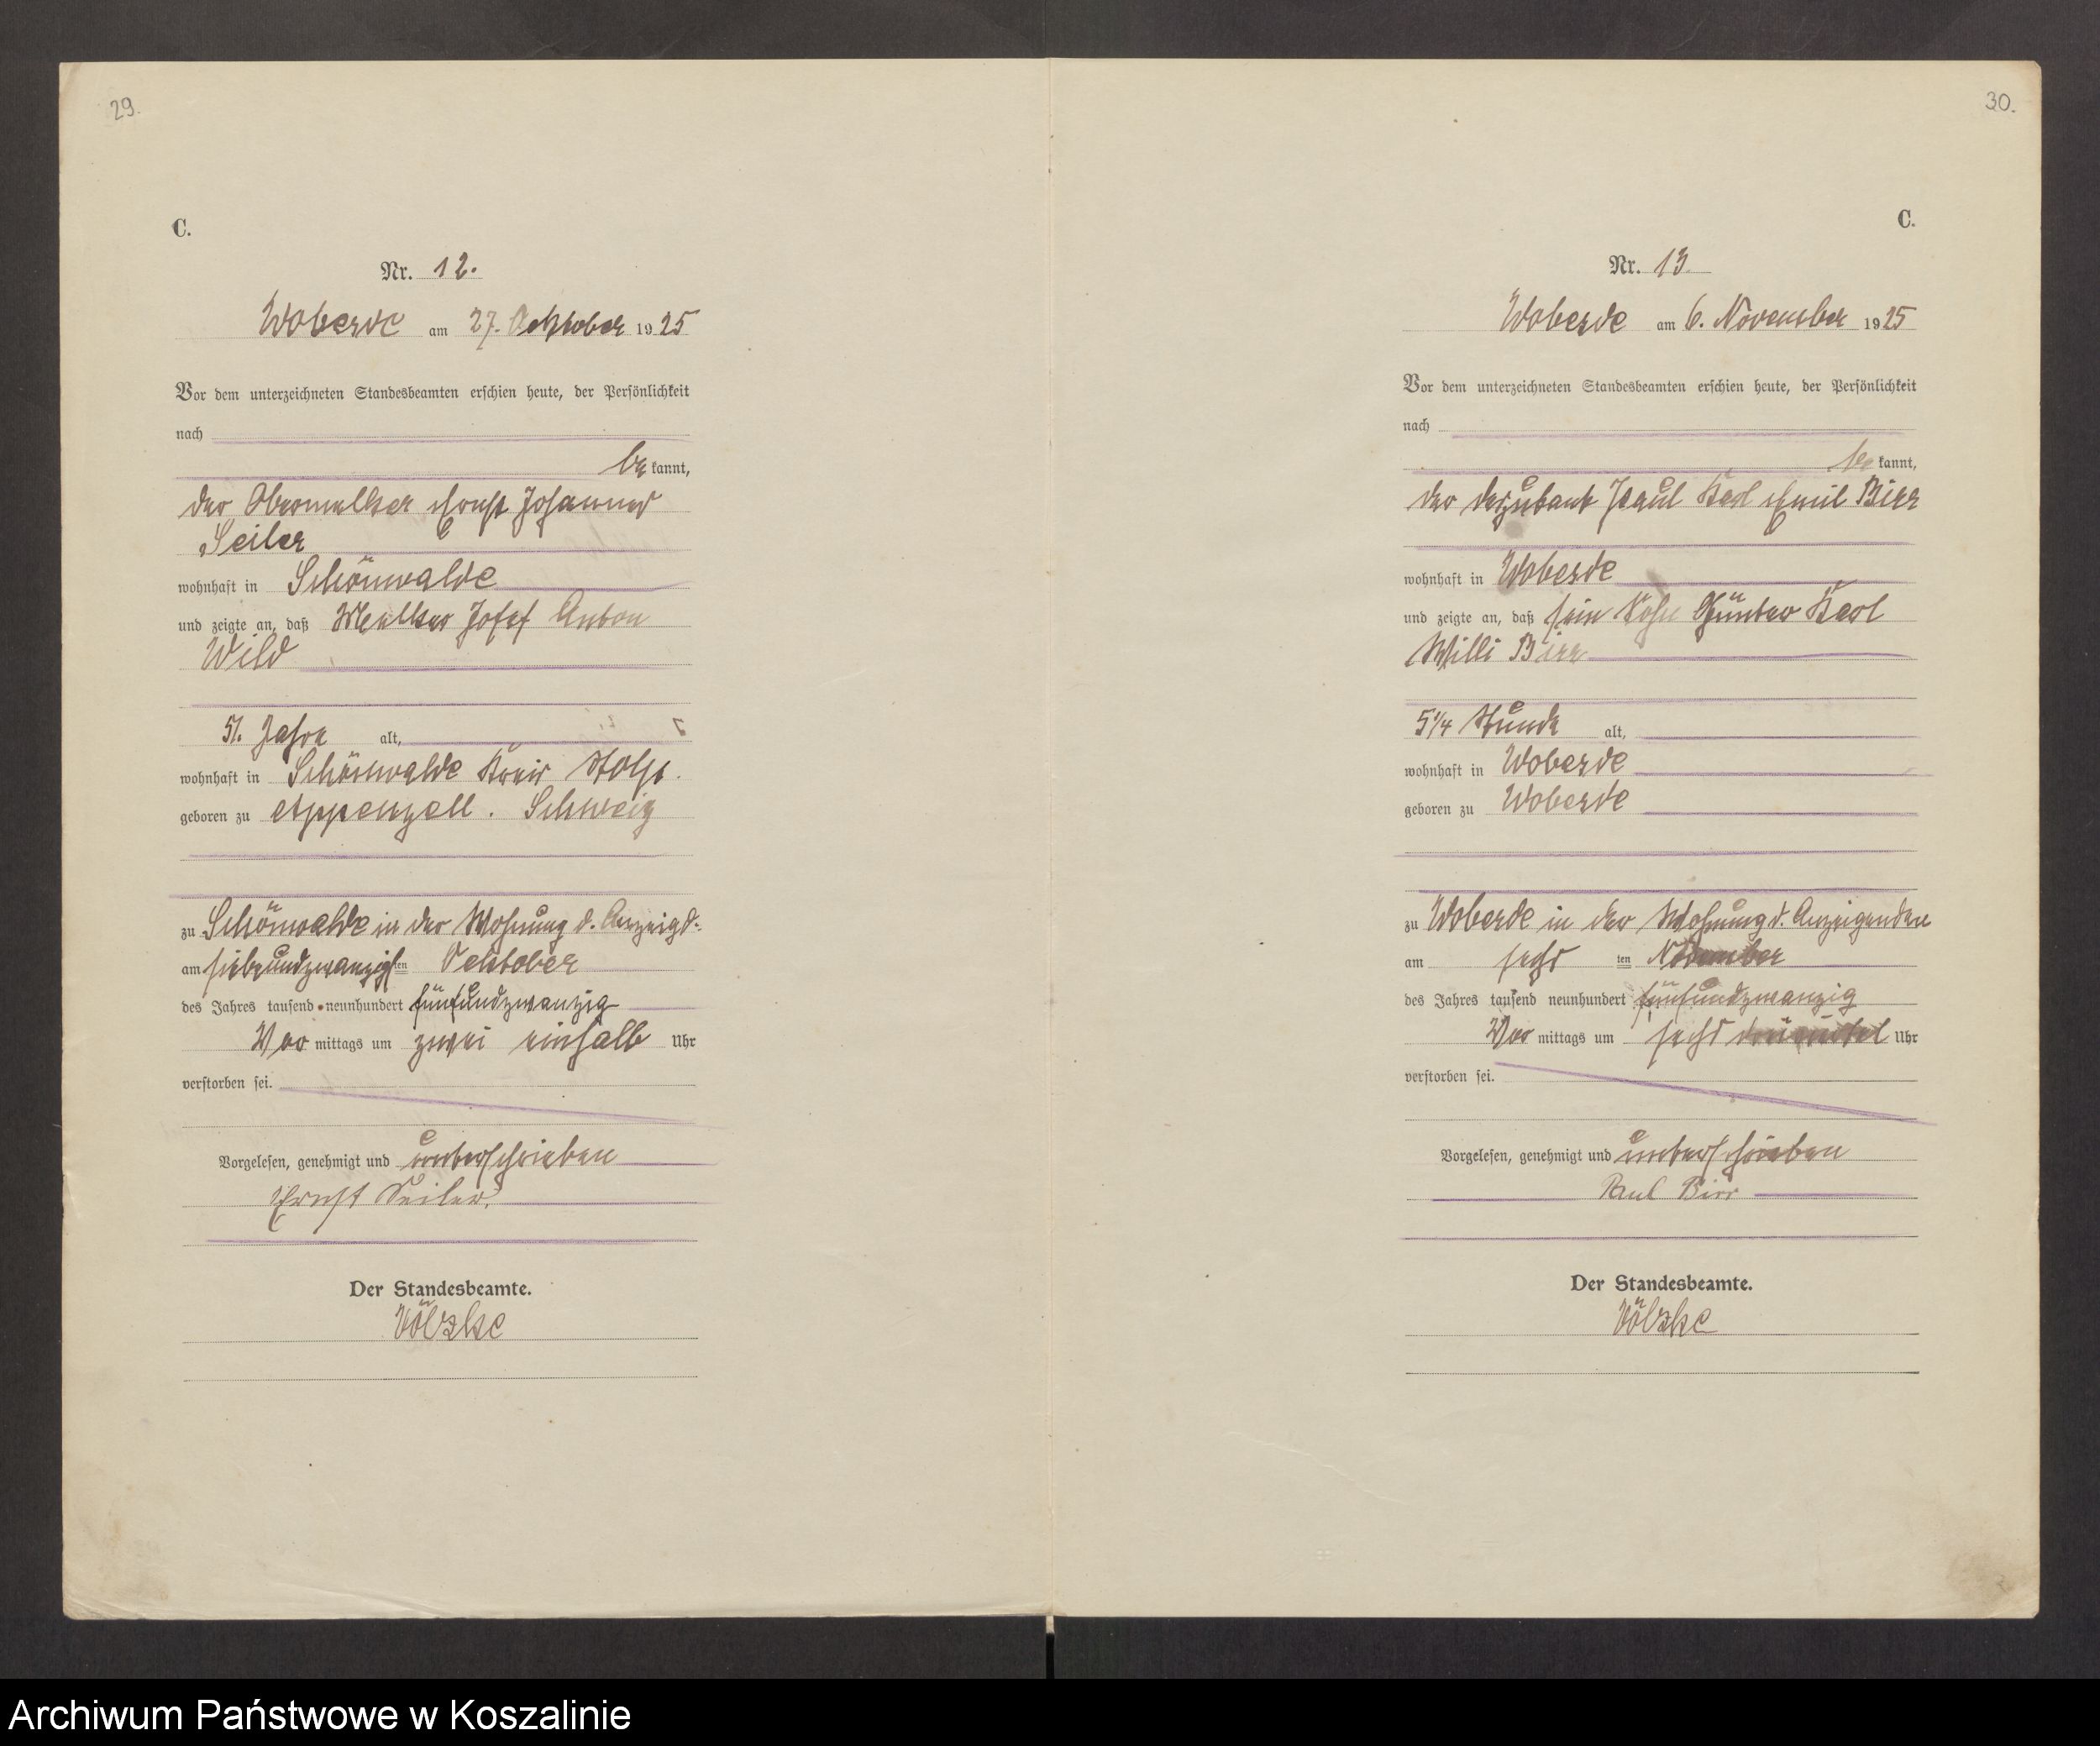 29.
C.
Nr. 12.
Woberde am 27. Oektober 1925
Vor dem unterzeichneten Standesbeamten erschien heute, der Persönlichkeit
nach
be kannt,
der Obermelker Ernst Johannes
Seiler
wohnhaft in Schönwalde
und zeigte an, daß Melker Josef Anton
Wild
51. Jahre alt,
wohnhaft in Schönwalde Kreis Stolp.
geboren zu Appenzell. Schweiz
zu Schönwalde in der Wohnung d. Anzeigd.
am siebundzwanzigsten Oektober
des Jahres tausend neunhundert fünfundzwanzig
Vor mittags um zwei einhalb Uhr
verstorben sei.
Vorgelesen, genehmigt und unterschrieben
Ernst Seiler.
Der Standesbeamte.
Völzke
30.
C.
Nr. 13.
Woberde am 6. November 1925
Vor dem unterzeichneten Standesbeamten erschien heute, der Persönlichkeit
nach
be kannt,
der Deputant Paul Karl Emil Birr
wohnhaft in Woberde
und zeigte an, daß sein Sohn Günter Karl
Willi Birr
5 1/4 Stunde alt,
wohnhaft in Woberde
geboren zu Woberde
zu Woberde in der Wohnung d. Anzeigenden
am sechsten November
des Jahres tausend neunhundert fünfundzwanzig
Vor mittags um sechs dreiviertel Uhr
verstorben sei.
Vorgelesen, genehmigt und unterschrieben
Paul Birr
Der Standesbeamte.
Völzke
Archiwum Państwowe w Koszalinie